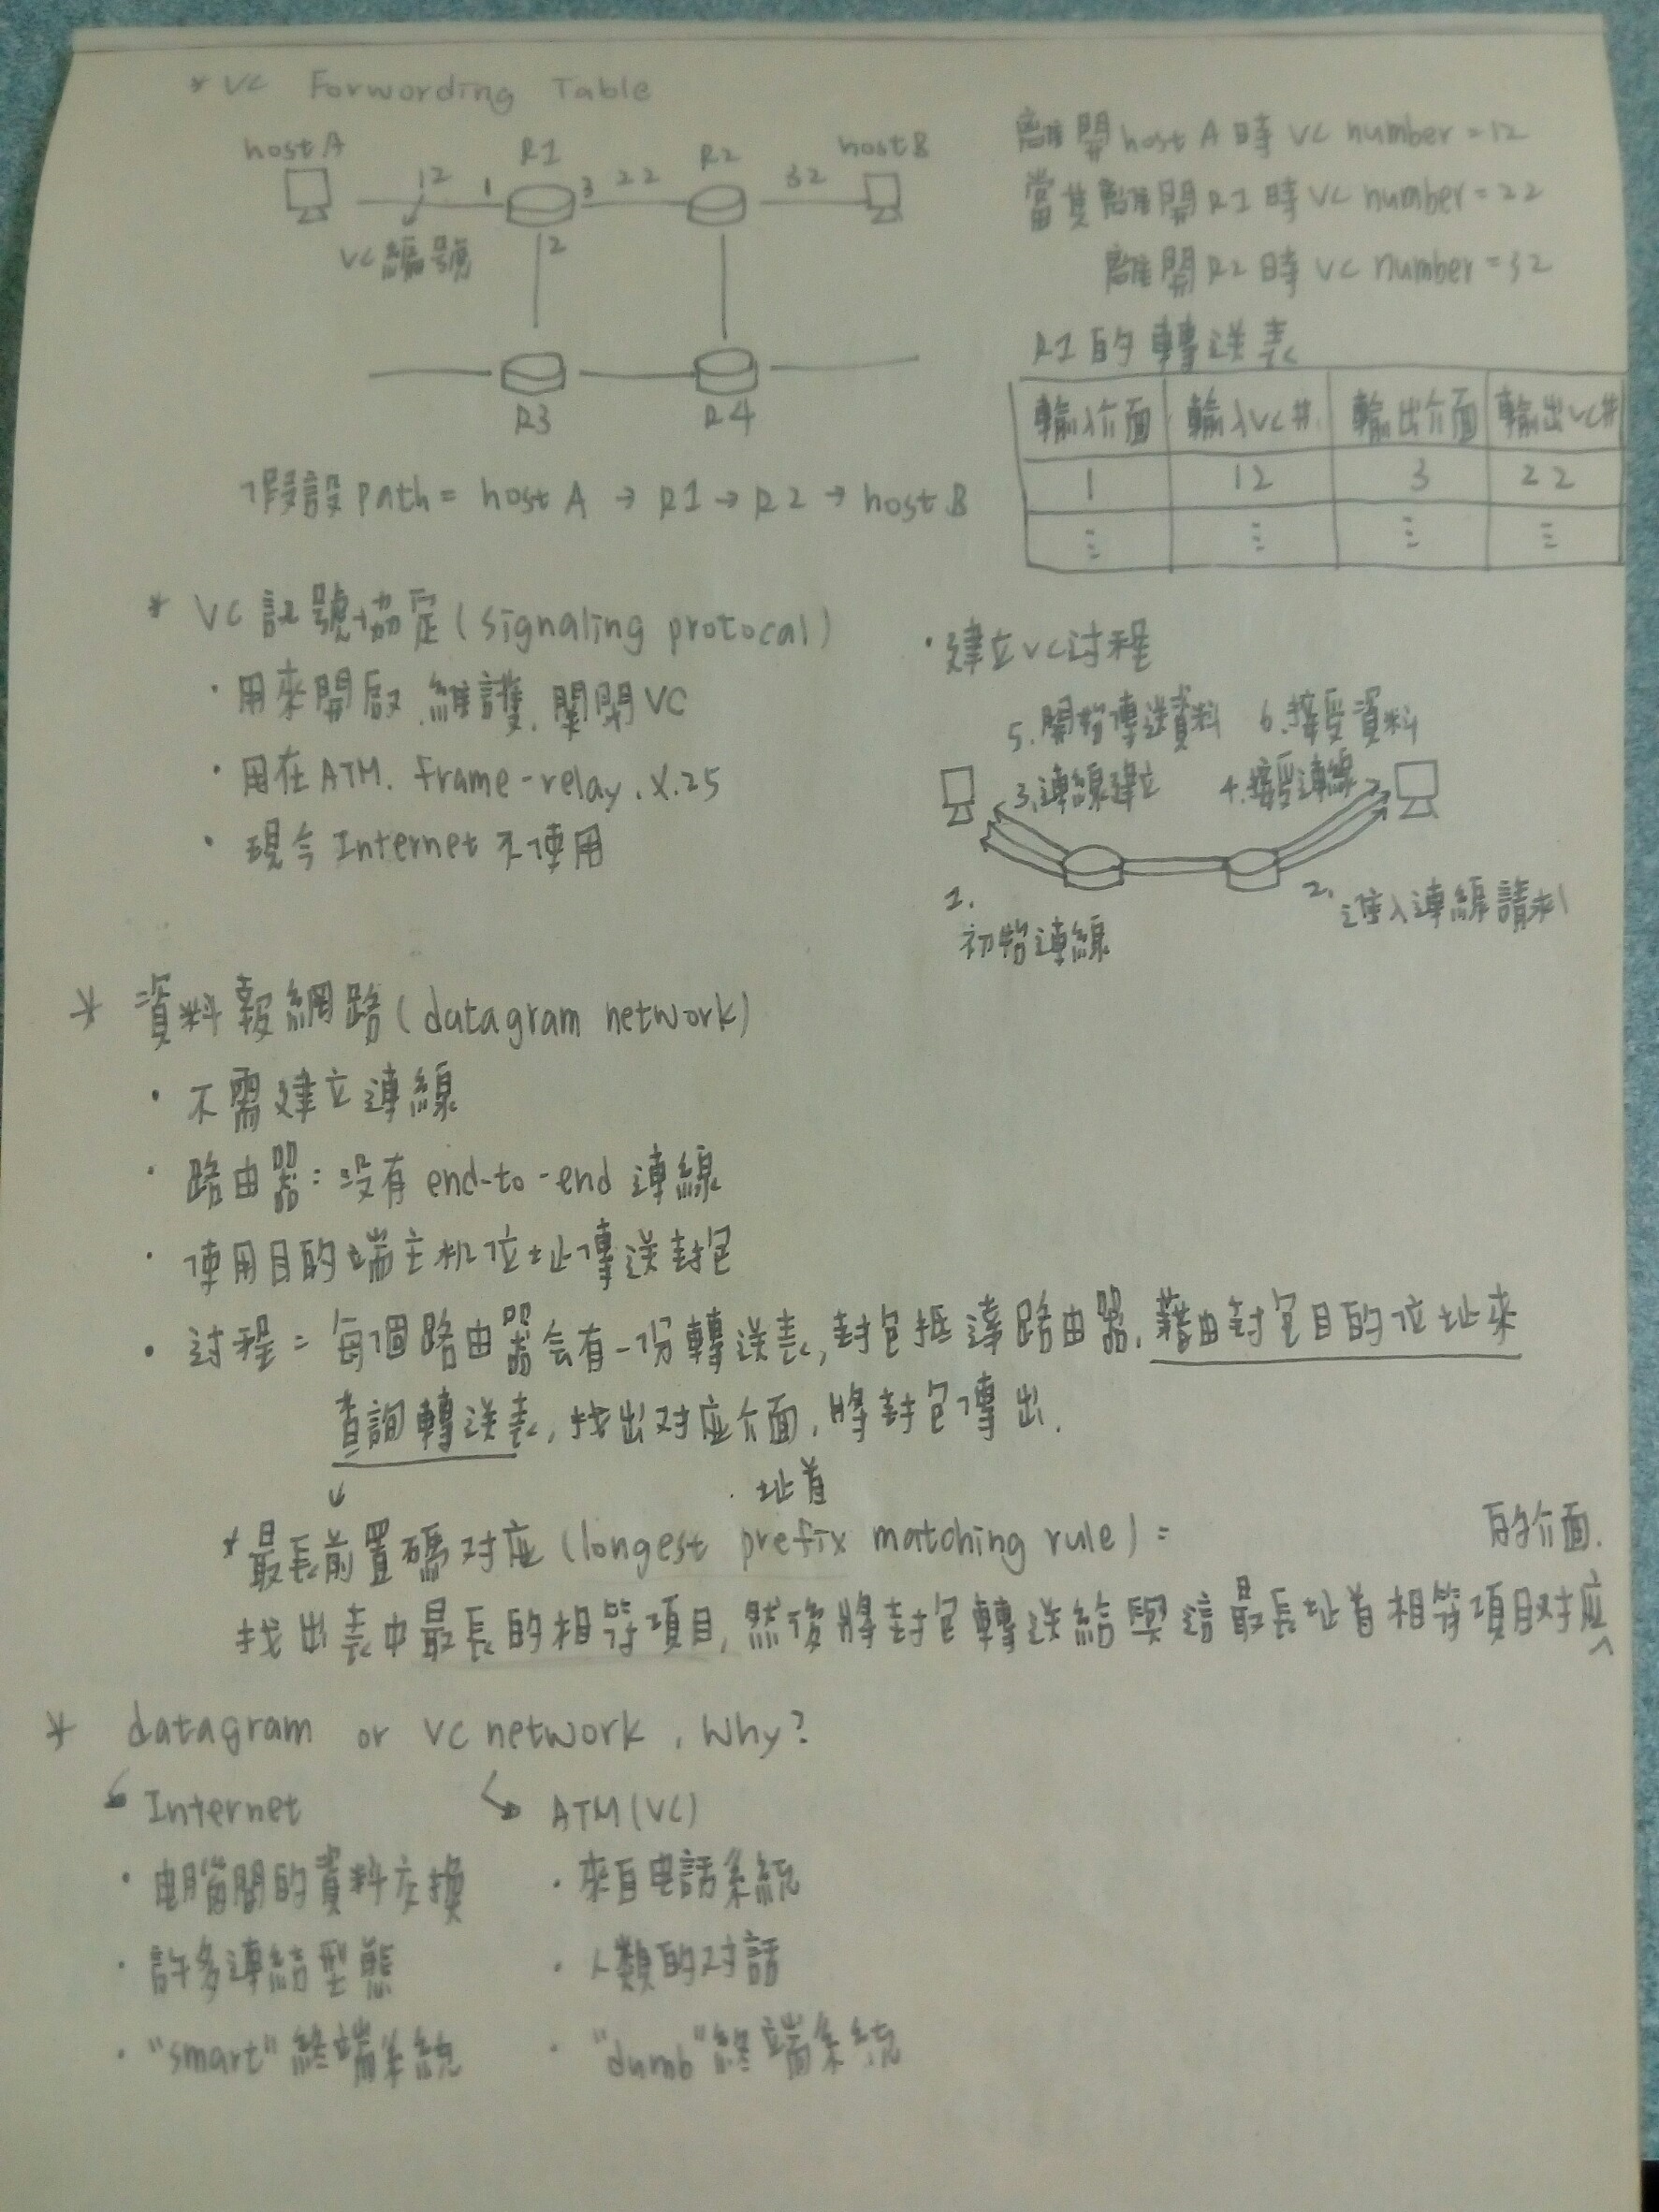 * VC Forwording Table
host A
R1
R2
host B
12
1
3
22
32
VC編號
2
R3
R4
假設path = host A → R1 → R2 → host B
離開host A時 VC number = 12
當其離開R1時 VC number = 22
離開R2時 VC number = 32
R1的轉送表
輸入介面 輸入VC# 輸出介面 輸出VC#
1 12 3 22
⋮ ⋮ ⋮ ⋮
* VC 記號協定(signaling protocal)
· 用來開啟.維護.關閉VC
· 用在ATM. frame-relay. X.25
· 現今Internet不使用
· 建立VC过程
5.開始傳送資料 6.接受資料
3.連線建立 4.接受連線
1.
初始連線
2.進入連線請求
* 資料報網路(datagram network)
· 不需建立連線
· 路由器:没有end-to-end連線
· 使用目的端主机位址傳送封包
· 过程 = 每個路由器会有一份轉送表,封包抵達路由器.藉由封包目的位址來
查詢轉送表,找出对应介面,將封包傳出.
址首
* 最長前置碼对应(longest prefix matching rule) =
的介面.
找出表中最長的相等項目,然後將封包轉送給與這最長址首相等項目对应^
* datagram or VC network. Why?
Internet
ATM(VC)
· 电腦間的資料交換
· 來自电話系統
· 許多連結型態
· 人類的对話
· "smart"終端系統
· "dumb"終端系統